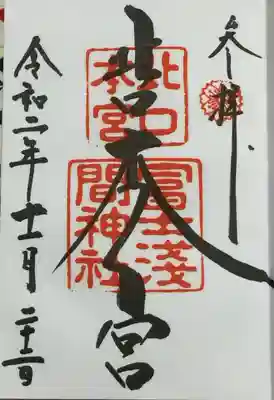 参拝
北口本宮
北口
本宮
冨士淺
間神社
令和二年十一月二十二日